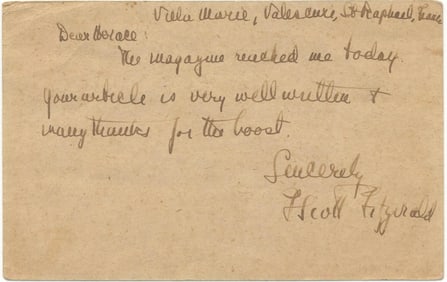 Villa Marie, Valescure, St Raphael, France
Dear Horace:
The magazine reached me today.
your article is very well written &
many thanks for the boost.
Sincerely
F Scott Fitzgerald